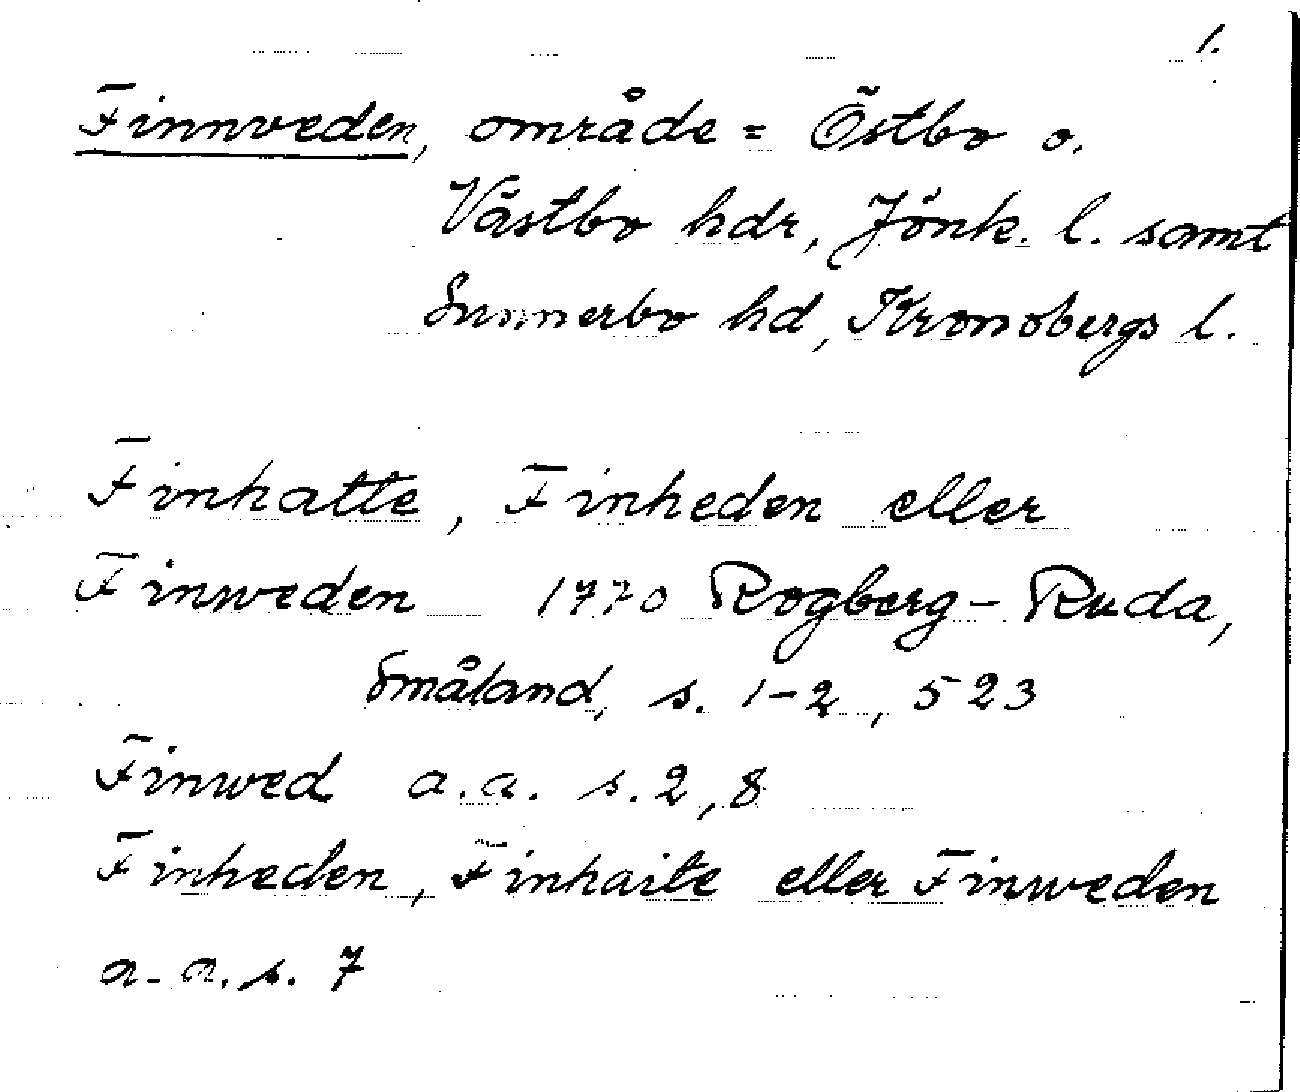 1.
Finnveden, område = Östbo o.
Västbo hdr, Jönk. l. samt
Sunnerbo hd, Kronobergs l.
Finhatte, Finheden eller
Finweden 1770 Rogberg-Ruda,
Småland, s. 1-2, 523
Finwed a.a. s. 2, 8
Finheden, Finhaite eller Finweden
a.a. s. 7